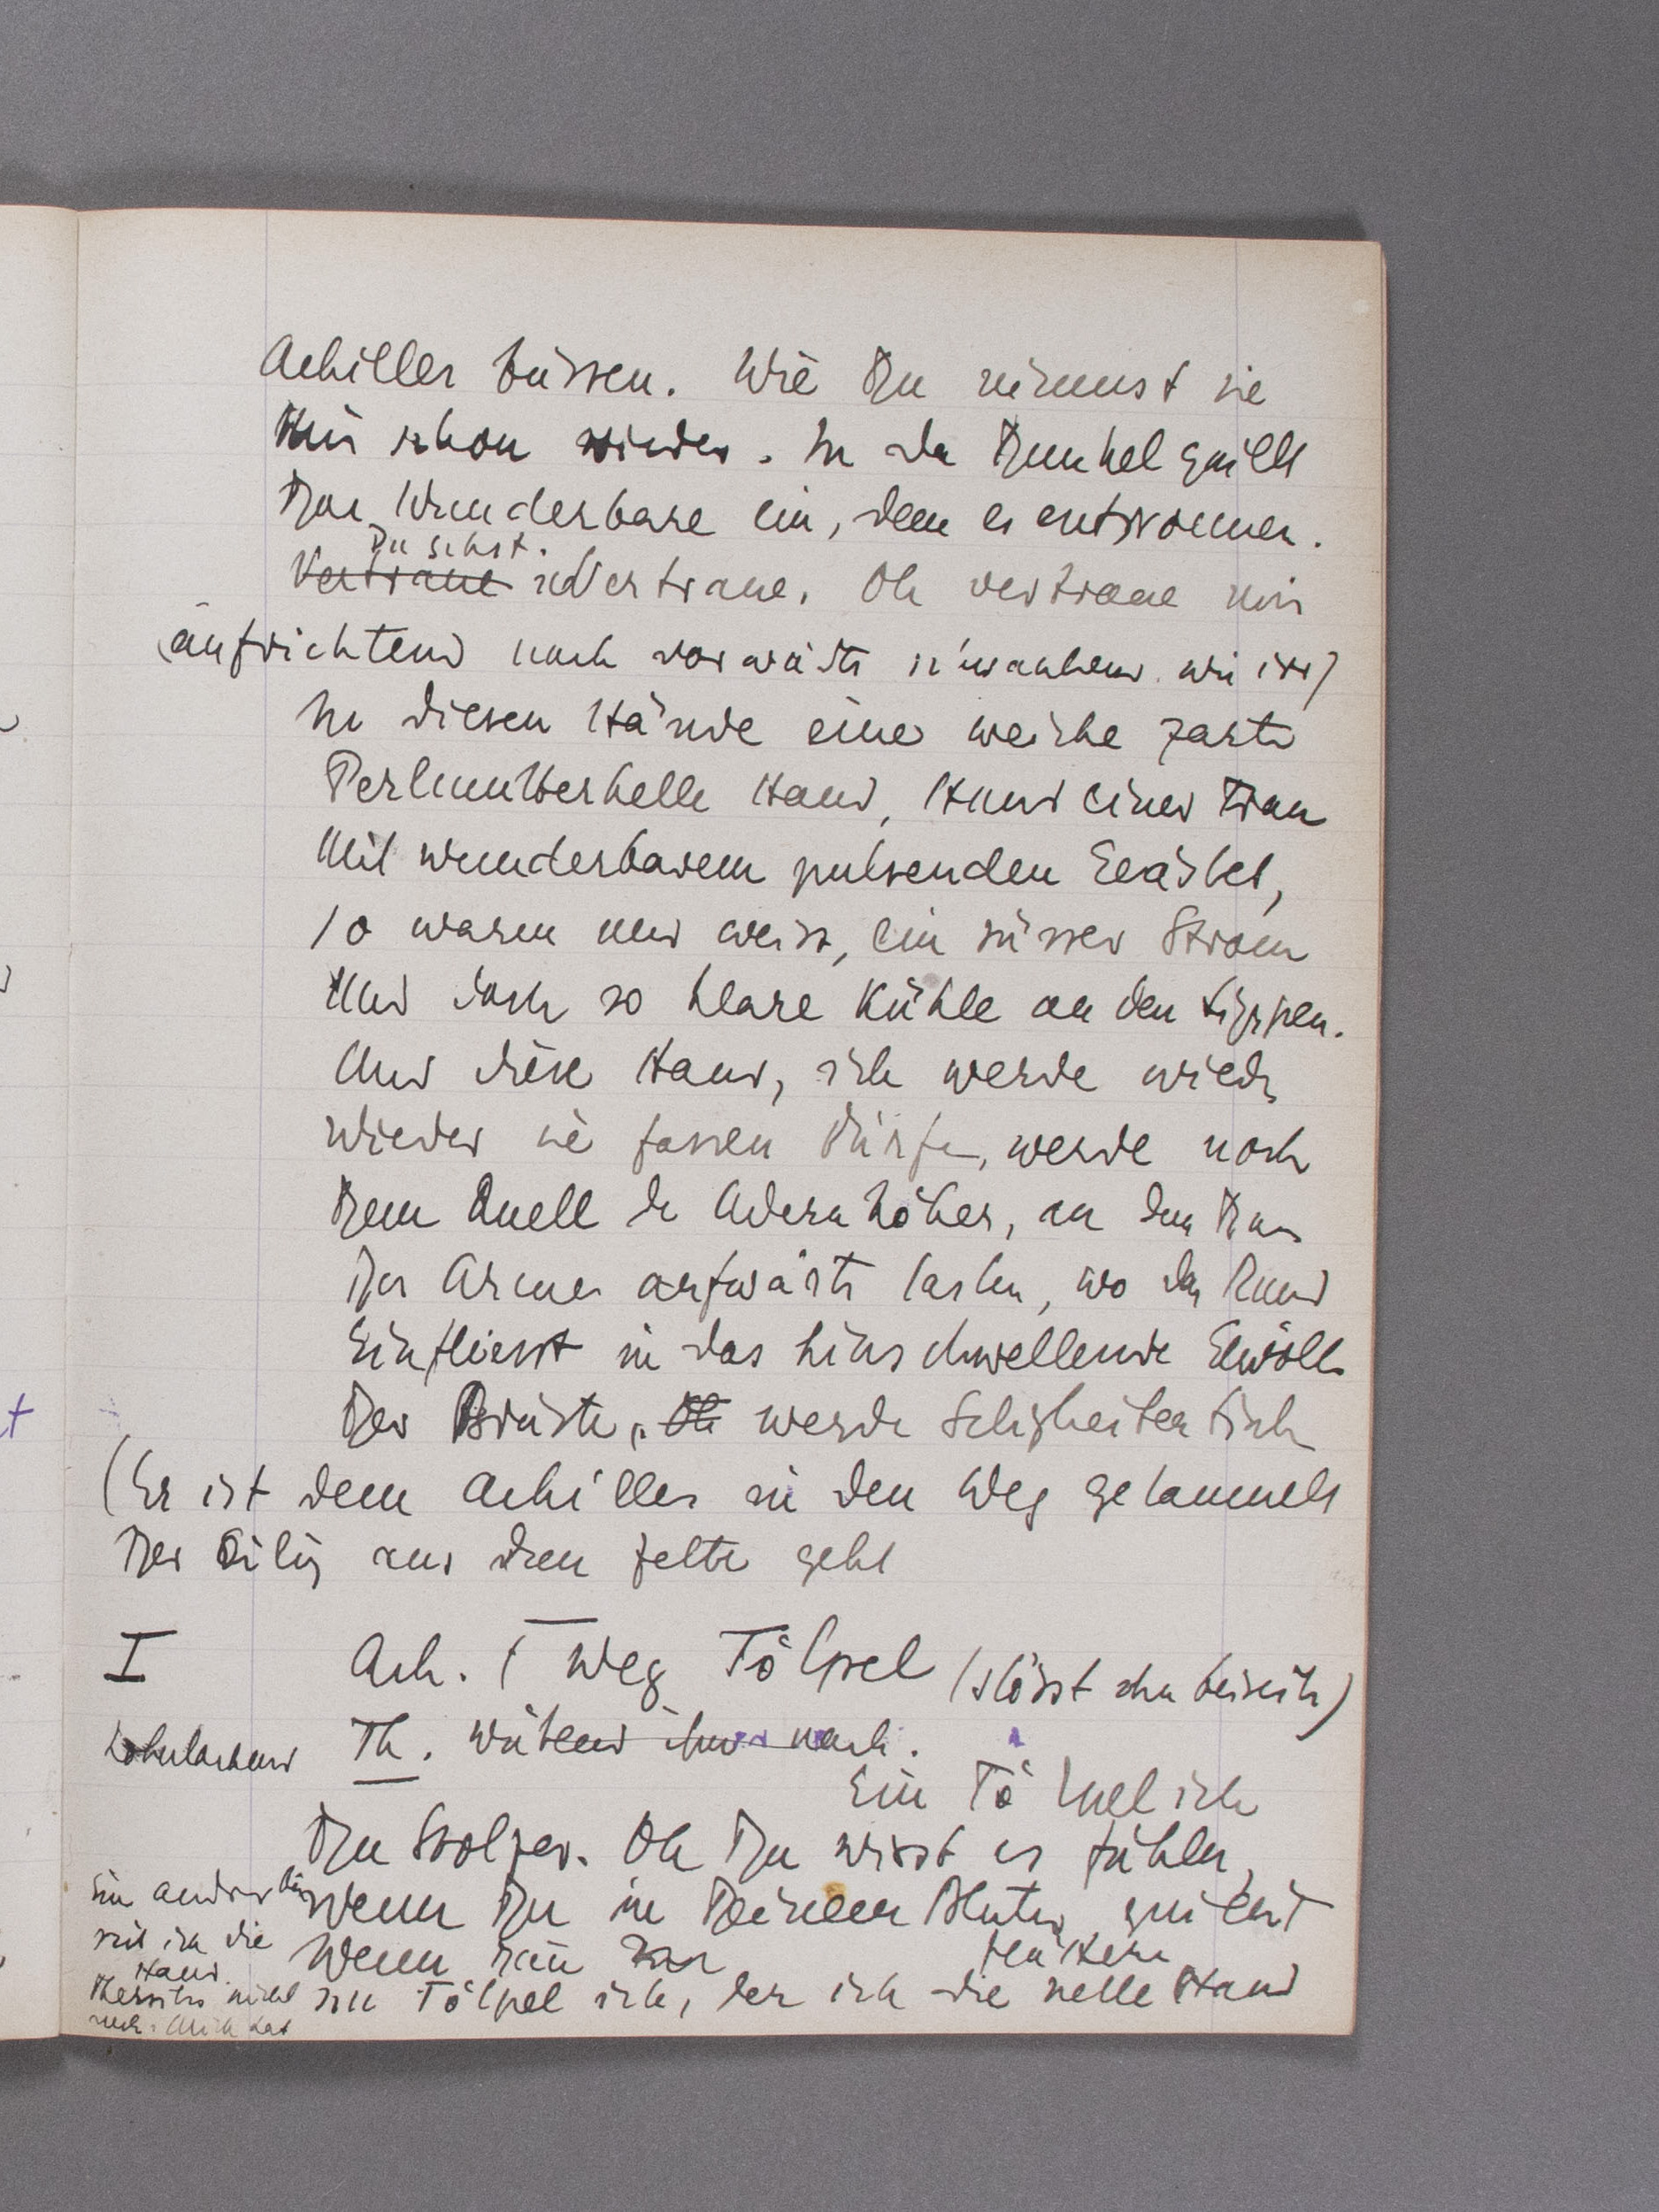 Achilles büssen. Wie Du nimmst sie
Mir schon wieder. In da Dunkel quillt
Das Wunderbare ein, dem es entronnen.
Du sehst.
Vertraue Vertraue. Oh vertraue mir
(aufrichtend nach vorwärts schwankend wie irr)
In diesen Hände eine weiche zarte
Perlmutterhelle Hand, Hand einer Frau
Mit wunderbarem pulsenden Geäder,
so warm und weiss, ein süsser Strom
Und doch so klare Kühle an den Lippen.
Und diese Hand, ich werde wieder
Wieder sie fassen dürfen, werde noch
Dem Quell de Adern höher, an dem
Des Armes aufwärts tasten, wo das Rund
Einfliesst in das hinschwellende Gewölb
Der Brüste, Oh werde Seligkeiten
(Er ist dem Achilles in den Weg getaumelt
Der Eilig aus dem Zelte geht
I Ach. Weg Tölpel (stösst ihn beiseite)
hohnlachend Th. Wütend ihm nach.
Ein Tölpel ich
Du Stolzer. Oh Du wirst es fühlen,
Wenn Du in Deinem Blute
Wenn
ein Tölpel ich, der ich die helle Hand
Ein andrer bin
seit ich die
Hand
Thersites nicht
mehr. Mich hat